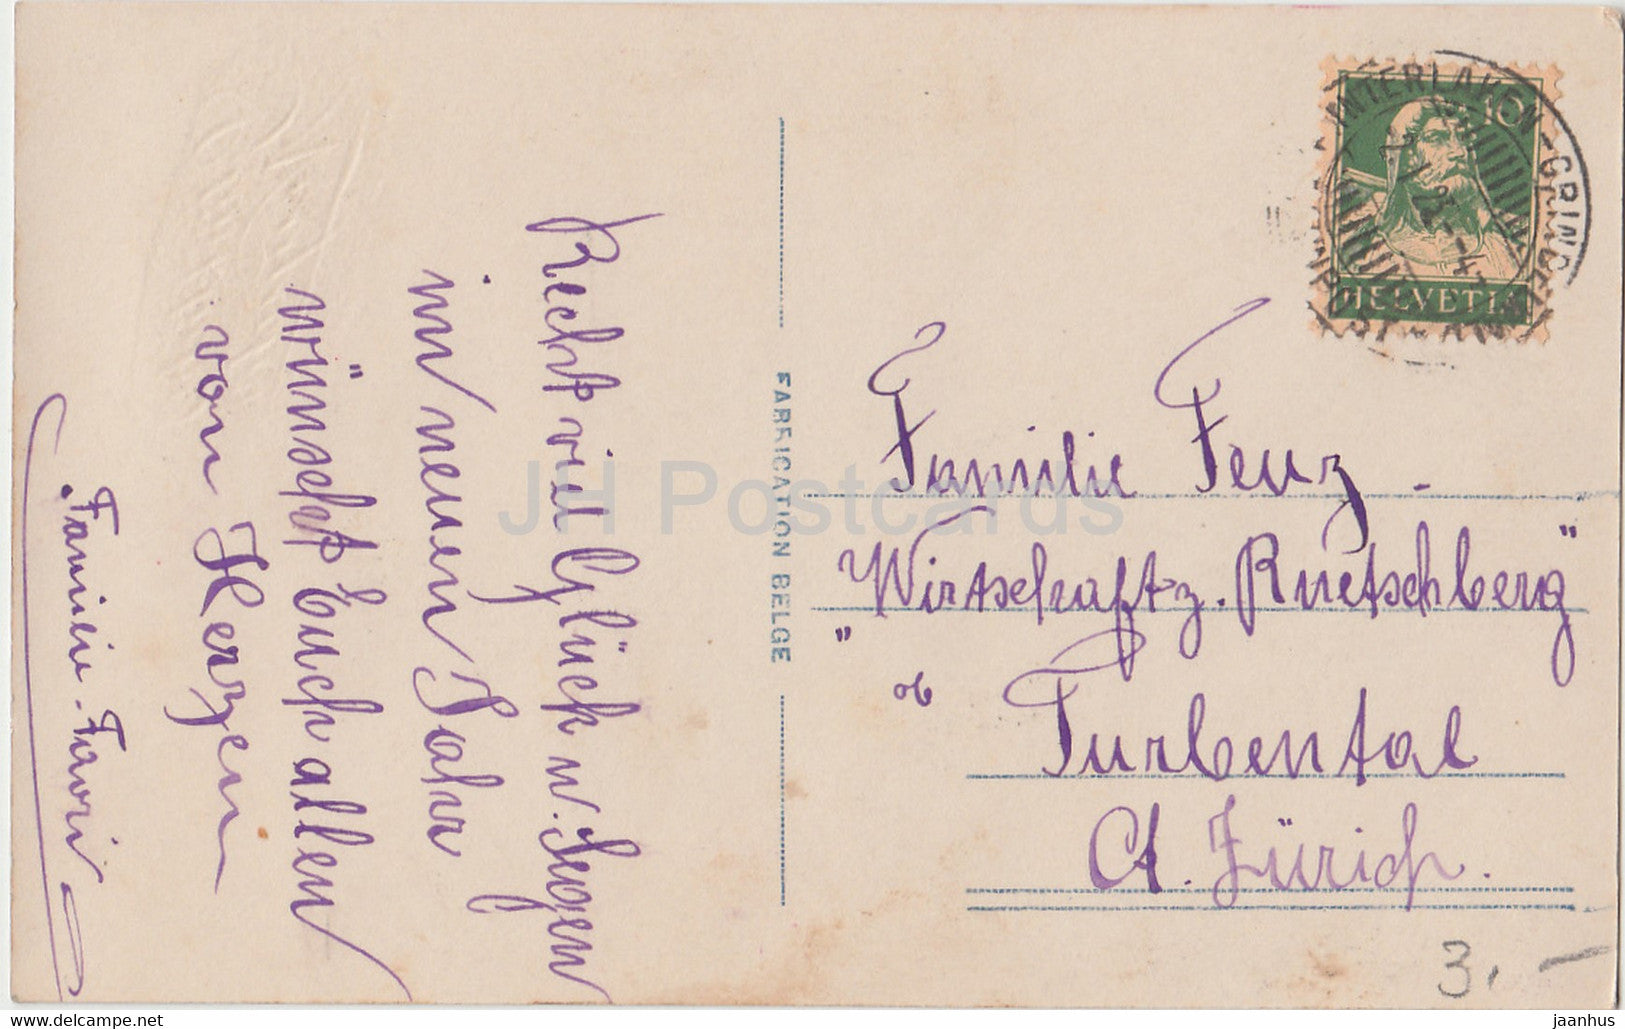 Recht viel Glück u. Segen
im neuen Jahr
wünscht Euch allen
von Herzen
Familie
FABRICATION BELGE
INTERLAKEN - GRINDEL
10
HELVETIA
Familie Feuz
"Wirtschaft z. Ruetschberg"
ob
Turbental
Ct. Zürich.
3.-
JH Postcards
delcampe.net
jaanhus